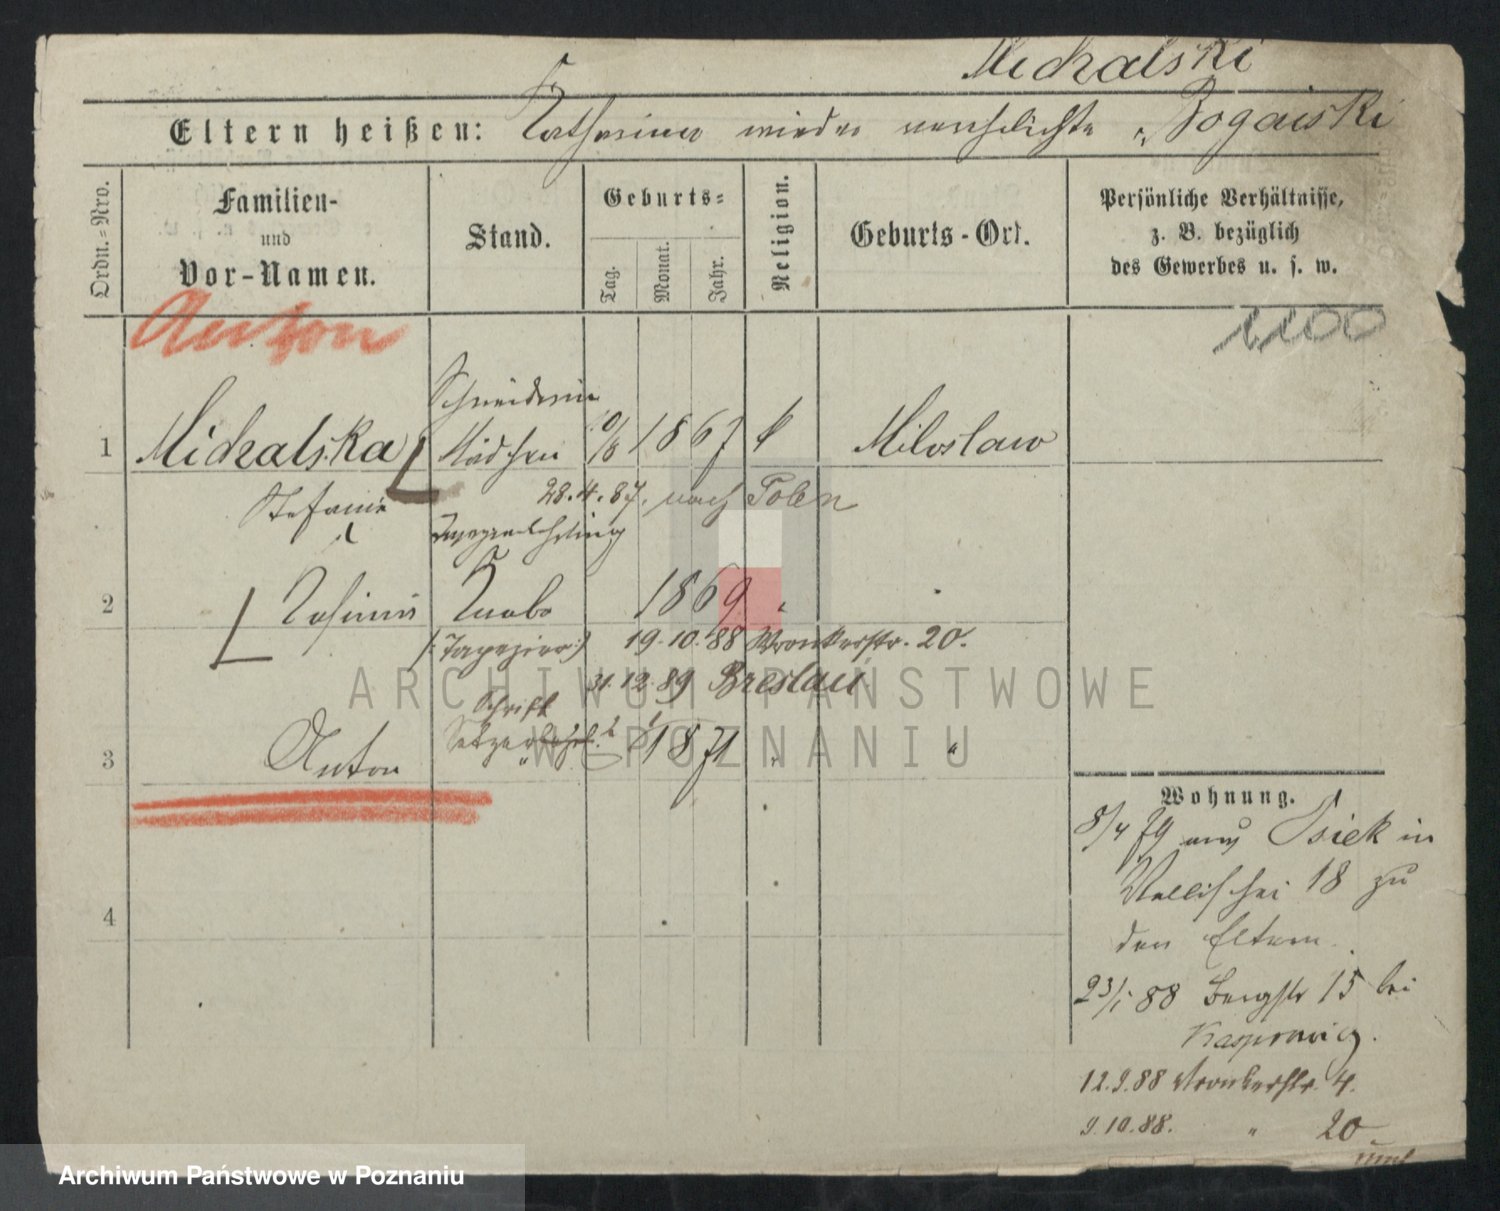 Michalski
Eltern heißen: Katharina wieder verehelichte Bogaiski
Ordn.=Nro.
Familien-
und
Vor-Namen.
Stand.
Geburts=
Tag.
Monat.
Jahr.
Religion.
Geburts-Ort.
Persönliche Verhältnisse,
z. B. bezüglich
des Gewerbes u. s. w.
Anton
1100
Schneiderin
1 Michalska Mädchen 10/8 1867 k Miloslaw
28.4.87. nach Polen
Stefanie
2 Casimir Knabe 1869 "
(Tapezierer) 19.10.88 Wronkerstr. 20.
31.12.89 Breslau
Schrift
3 Anton Setzer 1871 " "
4
Wohnung.
8/4 79 aus Psiek in
Wallischei 18 zu
den Eltern.
23/1 88 Bergstr 15 bei
Kasprowicz.
12.9.88 Wronkerstr. 4.
9.10.88. " 20
ARCHIWUM PAŃSTWOWE
W POZNANIU
Archiwum Państwowe w Poznaniu